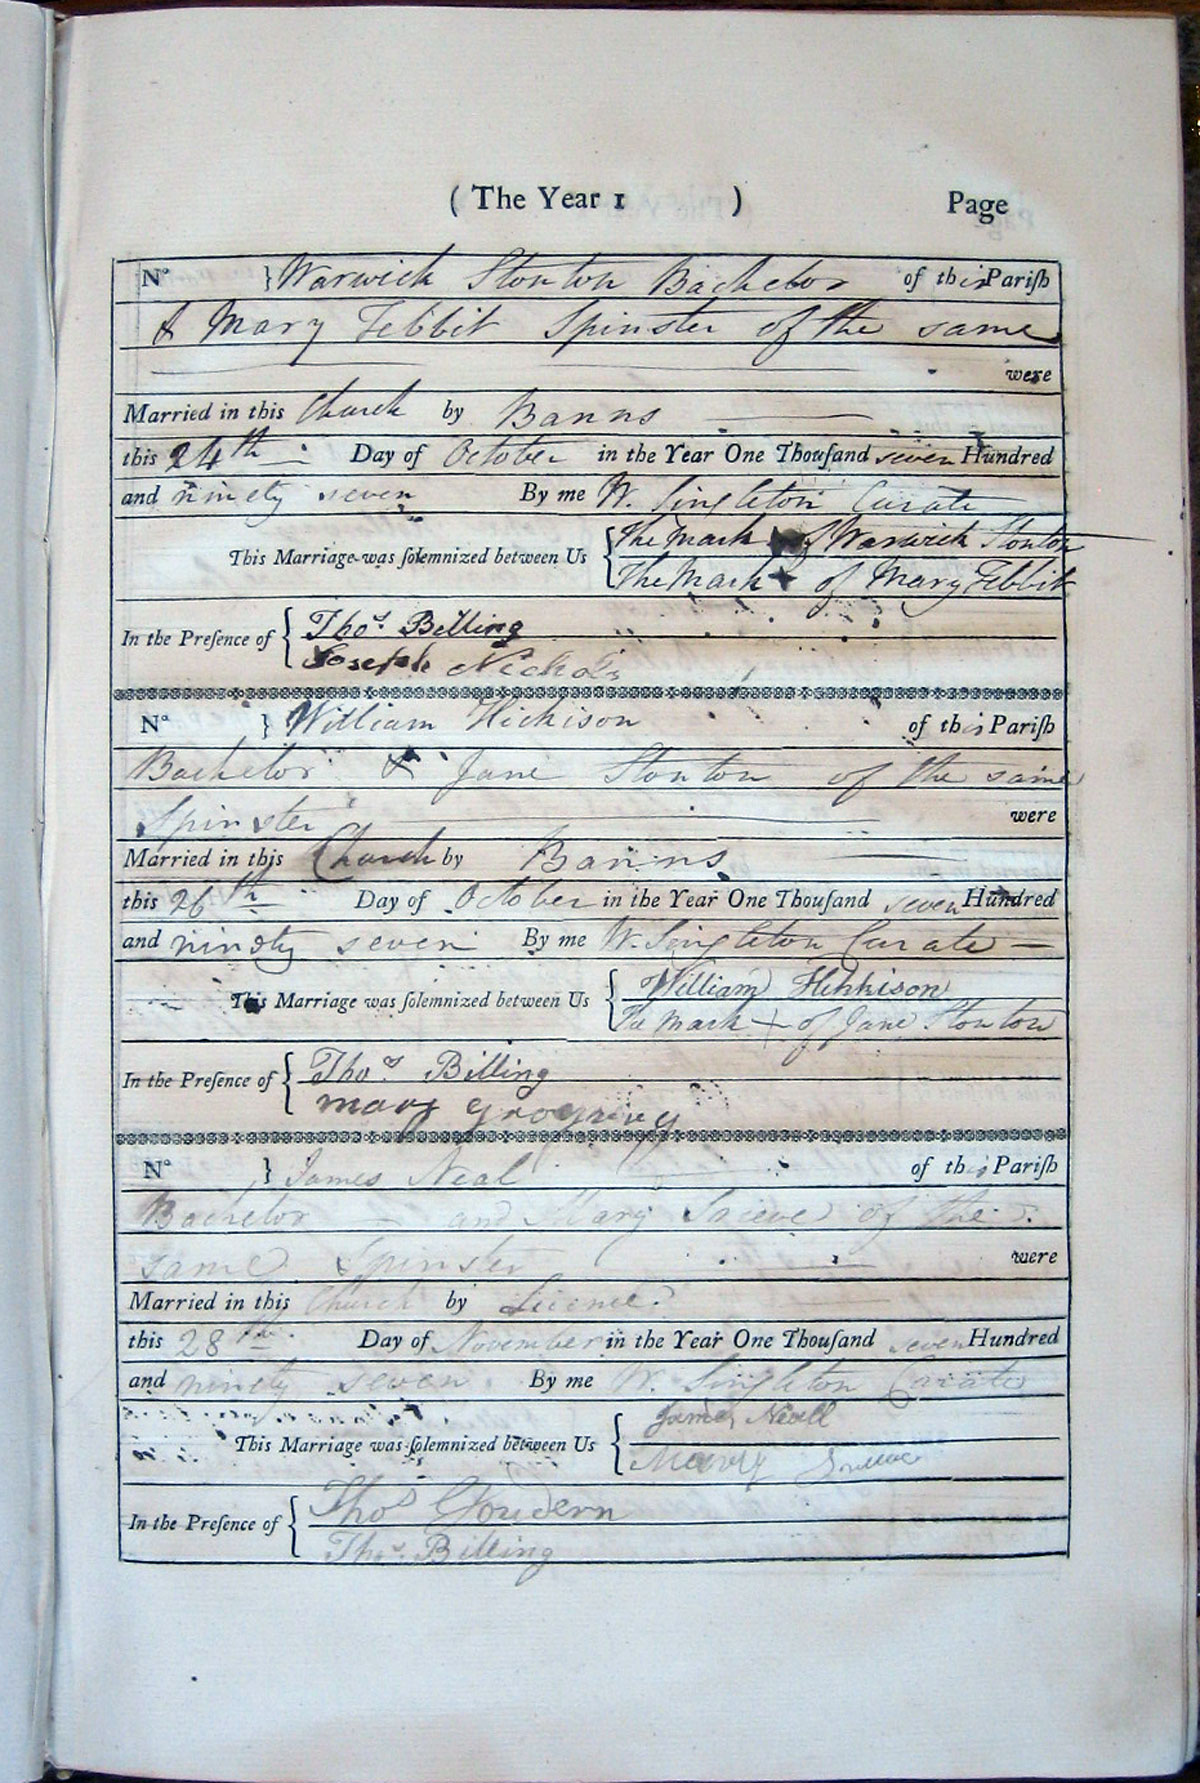 ( The Year 1 ) Page
No } Warwick Stonton Bachelor of this Pariſh
& Mary Tebbit Spinster of the same
were
Married in this Church by Banns
this 24th Day of October in the Year One Thouſand seven Hundred
and ninety seven By me W. Singleton Curate
This Marriage was ſolemnized between Us { The Mark of Warwick Stonton
The Mark + of Mary Tebbit
In the Preſence of { Thos. Billing
Joseph Nichols
No } William Hickison of this Pariſh
Bachelor & Jane Stonton of the same
Spinster were
Married in this Church by Banns
this 26th Day of October in the Year One Thouſand seven Hundred
and ninety seven By me W. Singleton Curate
This Marriage was ſolemnized between Us { William Hikkison
The Mark + of Jane Stonton
In the Preſence of { Thos. Billing
mary
No } James Neal of this Pariſh
Bachelor and Mary of the
same Spinster were
Married in this Church by License
this 28th Day of November in the Year One Thouſand seven Hundred
and ninety seven By me W. Singleton Curate
This Marriage was ſolemnized between Us { James Neall
Mary
In the Preſence of { Thos
Thos. Billing